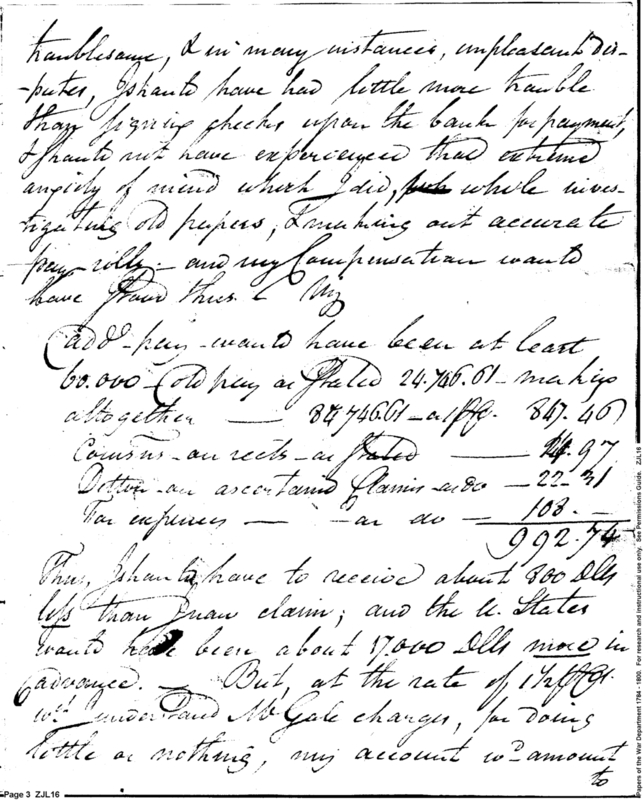 troublesome, & in many instances, unpleasant dis-
-putes, I should have had little more trouble
than signing checks upon the bank for payment,
& should not have experienced that extreme
anxiety of mind which I did, while inves-
-tigating old papers, & making out accurate
pay-rolls – and my Compensation would
have stood thus –
(add'l pay – would have been at least
60.000 – Old pay as stated 24.746.61 – making
altogether — 84,746.61 – a 1 pC. 847.46)
Comsns – on rects – as stated — 14.97
Ditto – on ascertaind Claims – as do – 22.31
For expences — – as do — 108. –
992.74
Thus, I should have to receive about 800 Dlls
less than I now claim; and the U. States
would have been about 17,000 Dlls more in
advance. – But, at the rate of 1½ pC
understand Mr Gale charges, for doing
little or nothing, my account wd amount
to
Page 3 ZJL16
Papers of the War Department 1784 - 1800. For research and instructional use only. See Permissions Guide. ZJL16